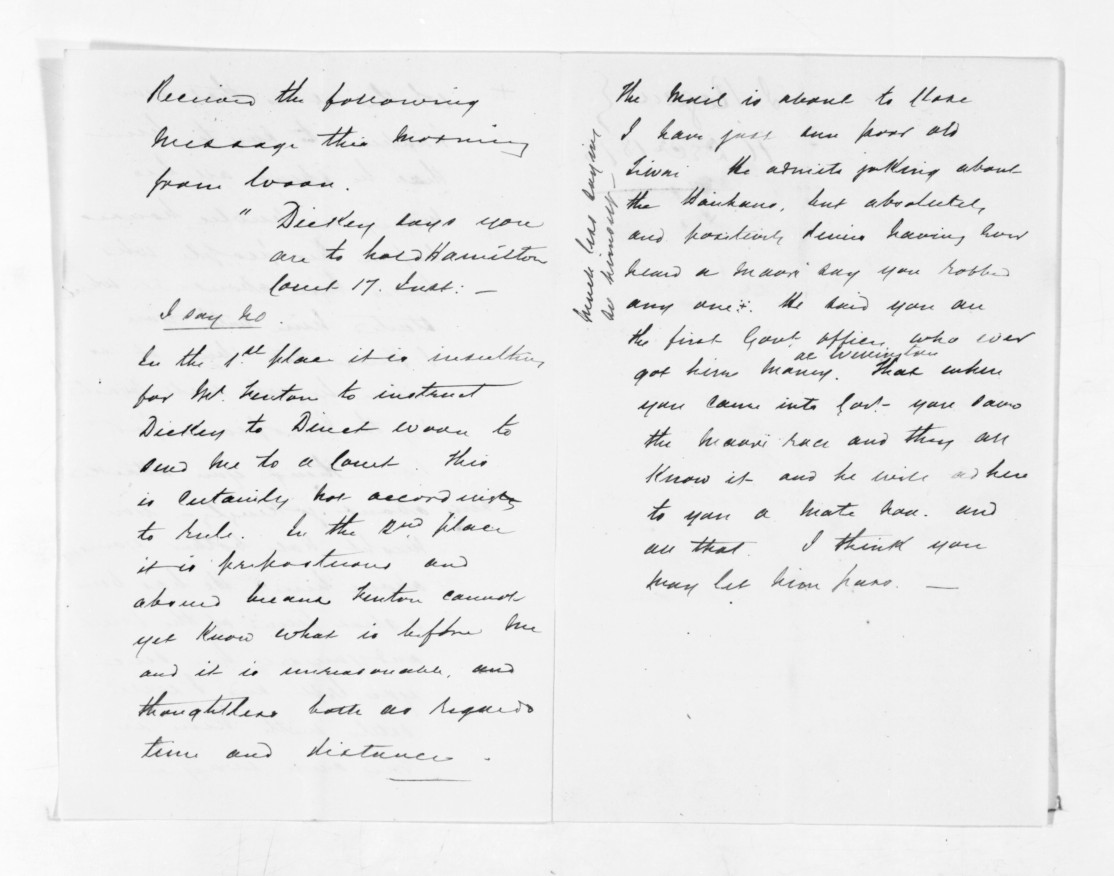 Received the following
Message this Morning
from Woon.
" Dickey says you
are to hold Hamilton
Court 17. Inst: —
I say No.
In the 1st place it is insulting
for Mr. Fenton to instruct
Dickey to Direct Woon to
send Me to a Court. This
is certainly not according
to rule. In the 2nd place
it is prepostuous and
absurd because Fenton cannot
yet Know what is before Me
and it is unreasonable, and
thoughtless both as regards
time and distance.
The Mail is about to Close
I have just seen poor old
He admits joking about
the Hauhaus, but absolutely
and positively denies having ever
heard a Maori say you robbed
any one +. He said you are
the first Govt officer, who ever
at Wellington
got him Money. That when
you came into Govt - you saved
the Maori race and they all
Know it and he will adhere
to you a mate noa. and
all that. I think you
may let him pass. —
Much less saying
so himself —